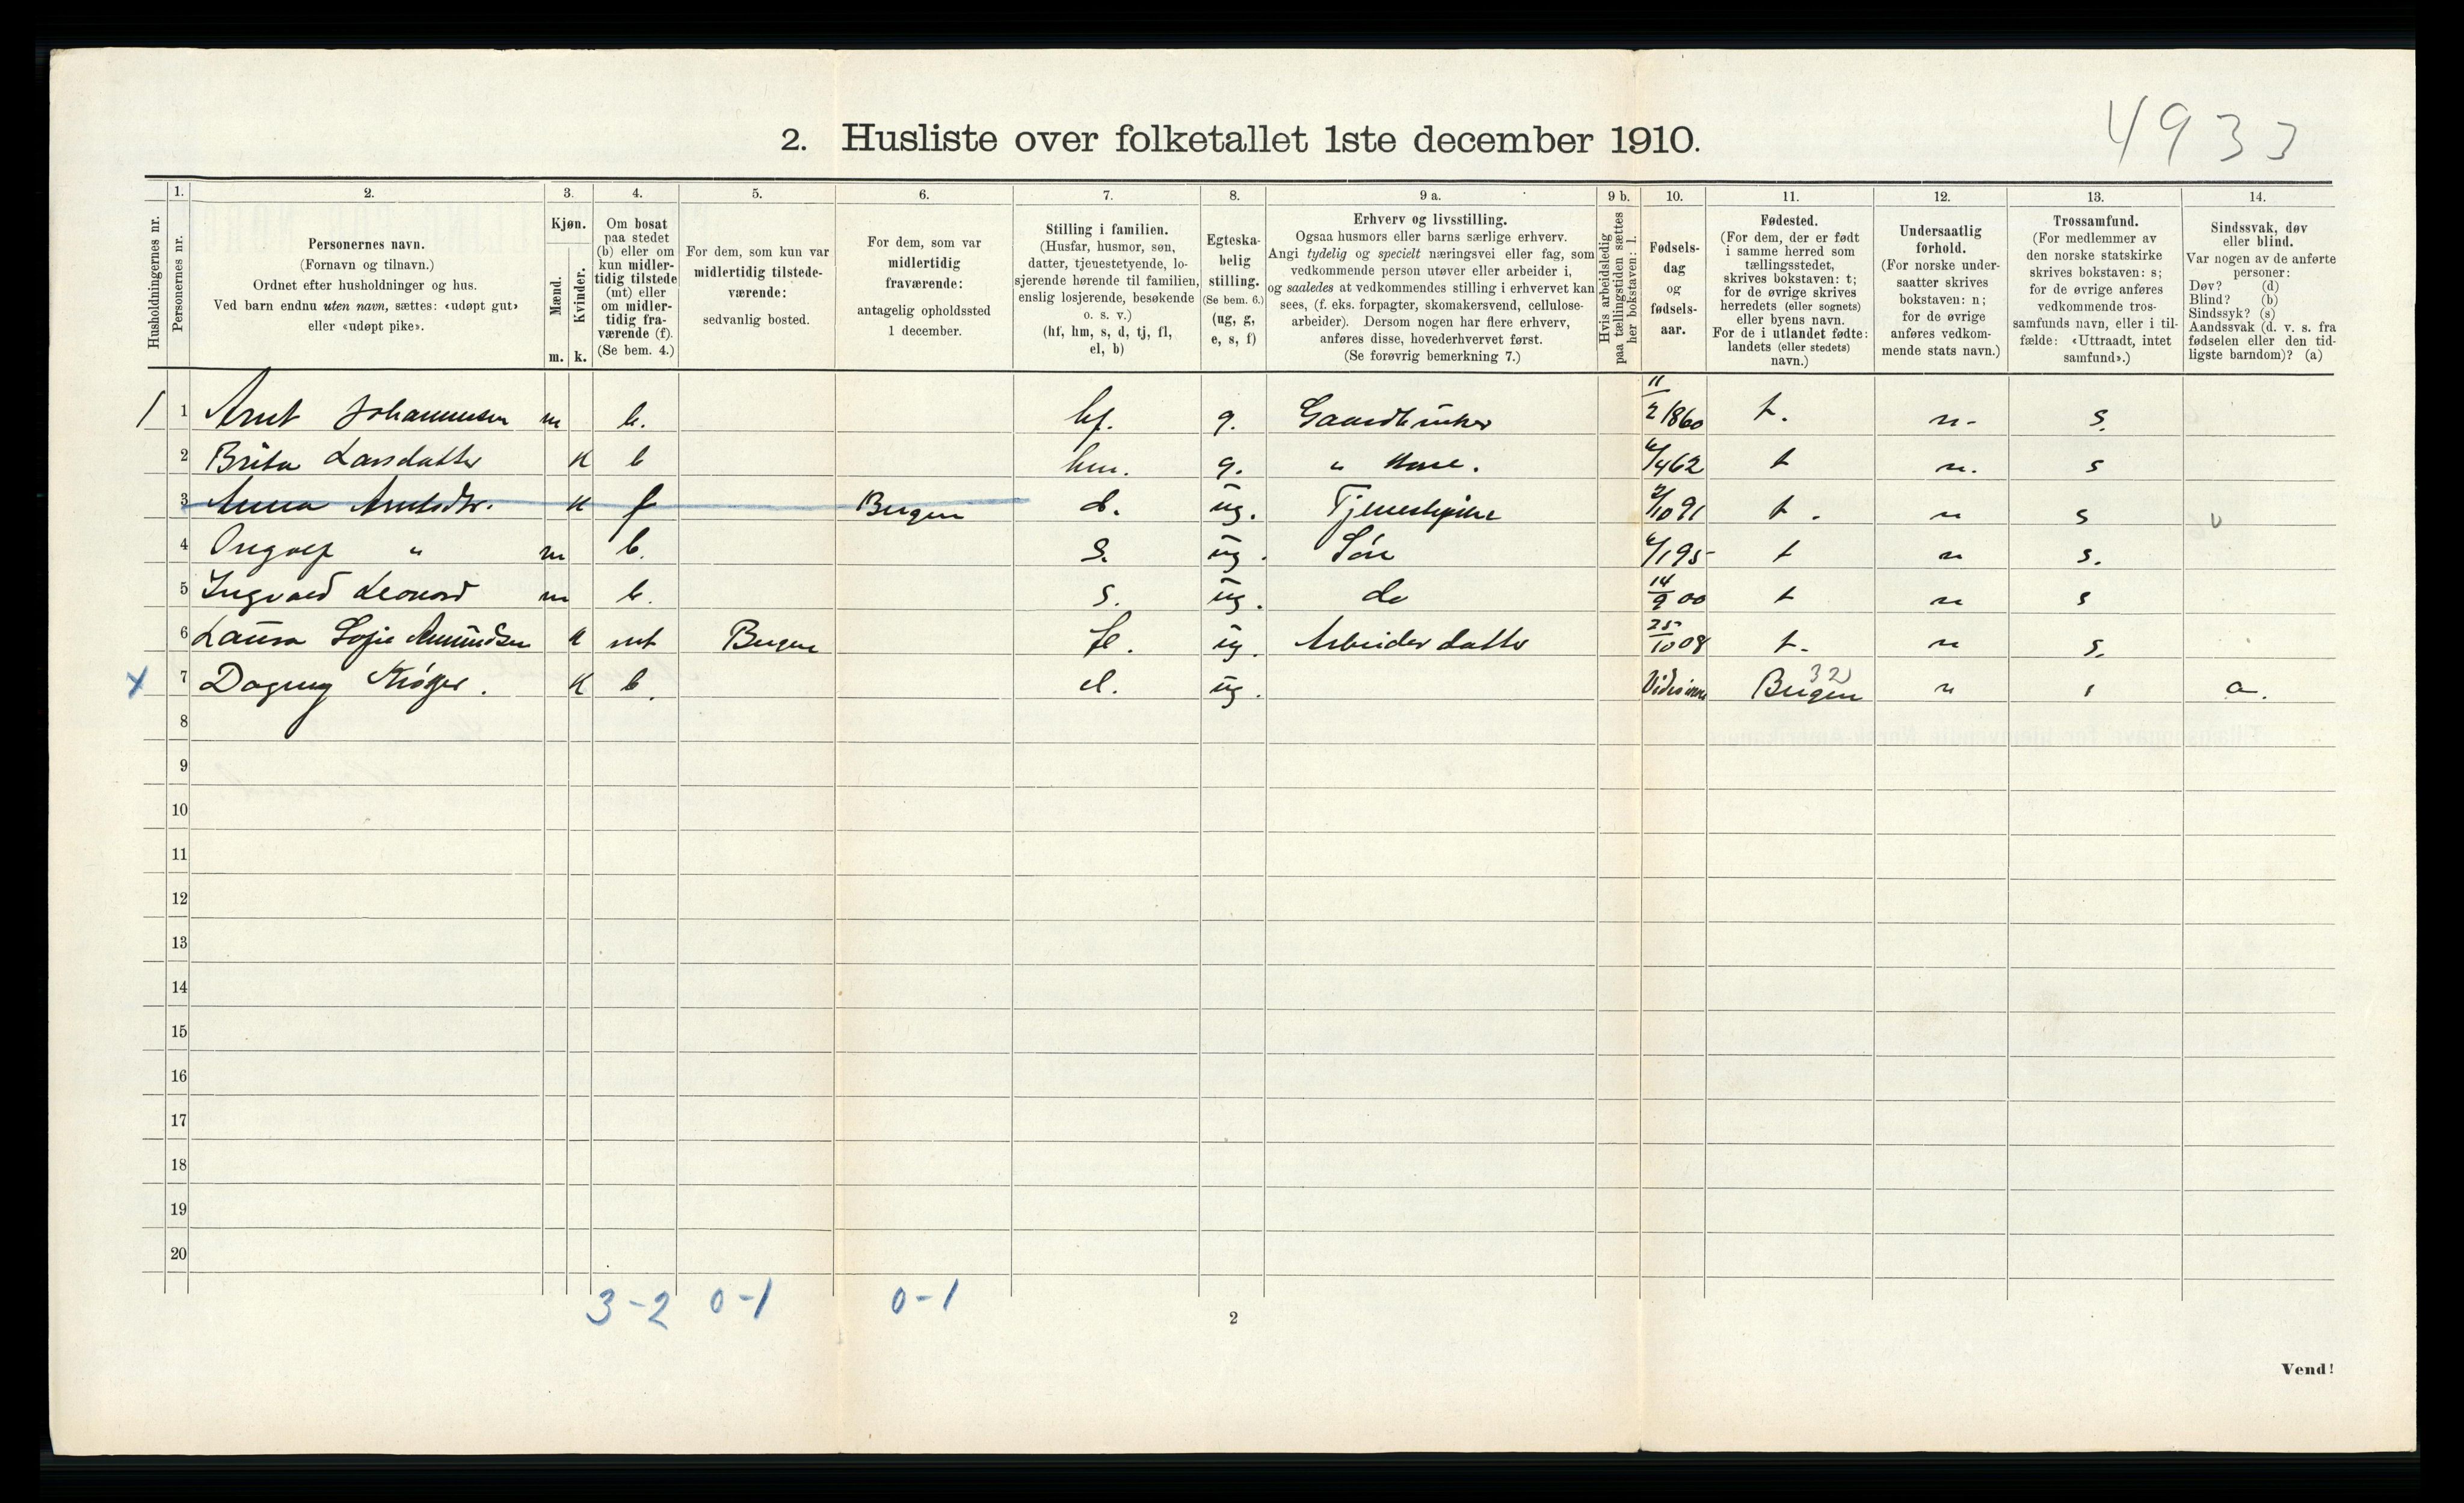 4933
2. Husliste over folketallet 1ste december 1910.
1. 2. 3. 4. 5. 6. 7. 8. 9 a. 9 b. 10. 11. 12. 13. 14.
Husholdningernes nr.
Personernes nr.
Personernes navn.
(Fornavn og tilnavn.)
Ordnet efter husholdninger og hus.
Ved barn endnu uten navn, sættes: «udøpt gut»
eller «udøpt pike».
Kjøn.
Mænd.
Kvinder.
m. k.
Om bosat
paa stedet
(b) eller om
kun midler-
tidig tilstede
(mt) eller
om midler-
tidig fra-
værende (f).
(Se bem. 4.)
For dem, som kun var
midlertidig tilstede-
værende:
sedvanlig bosted.
For dem, som var
midlertidig
fraværende:
antagelig opholdssted
1 december.
Stilling i familien.
(Husfar, husmor, søn,
datter, tjenestetyende, lo-
sjerende hørende til familien,
enslig losjerende, besøkende
o. s. v.)
(hf, hm, s, d, tj, fl,
el, b)
Egteska-
belig
stilling.
(Se bem. 6.)
(ug, g,
e, s, f)
Erhverv og livsstilling.
Ogsaa husmors eller barns særlige erhverv.
Angi tydelig og specielt næringsvei eller fag, som
vedkommende person utøver eller arbeider i,
og saaledes at vedkommendes stilling i erhvervet kan
sees, (f. eks. forpagter, skomakersvend, cellulose-
arbeider). Dersom nogen har flere erhverv,
anføres disse, hovederhvervet først.
(Se forøvrig bemerkning 7.)
Hvis arbeidsledig
paa tællingstiden sættes
her bokstaven: l.
Fødsels-
dag
og
fødsels-
aar.
Fødested.
(For dem, der er født
i samme herred som
tællingsstedet,
skrives bokstaven: t;
for de øvrige skrives
herredets (eller sognets)
eller byens navn.
For de i utlandet fødte:
landets (eller stedets)
navn.)
Undersaatlig
forhold.
(For norske under-
saatter skrives
bokstaven: n;
for de øvrige
anføres vedkom-
mende stats navn.)
Trossamfund.
(For medlemmer av
den norske statskirke
skrives bokstaven: s;
for de øvrige anføres
vedkommende tros-
samfunds navn, eller i til-
fælde: «Uttraadt, intet
samfund».)
Sindssvak, døv
eller blind.
Var nogen av de anførte
personer:
Døv? (d)
Blind? (b)
Sindssyk? (s)
Aandssvak (d. v. s. fra
fødselen eller den tid-
ligste barndom)? (a)
1 1 Arnt Johannesen m b. hf. g. Gaardbruker 11/2 1860 t. n. s.
2 Brita Larsdatter K b hm. g. " Kone. 6/4 62 t n. s
3 Anna Arntsdtr. K f Bergen d. ug. Tjenestepike 2/10 91 t. n s
4 Ingolf " m b. s. ug. Søn 6/1 95 t n s.
5 Ingvald Leonard m b. s. ug. do 14/9 00 t n s
6 Laura Sofie Amundsen K mt Bergen fl. ug. Arbeider datter 25/10 08 t. n s.
x 7 Dagny K b. el. ug. Bergen 32 n s a.
8
9
10
11
12
13
14
15
16
17
18
19
20
3-2 0-1 0-1
2
Vend!